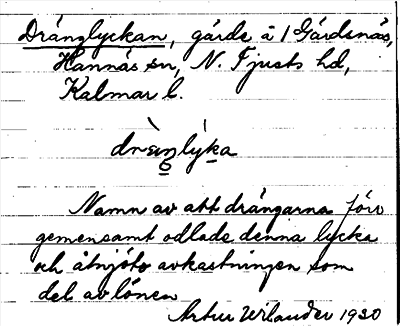 Dränglyckan, gärde å 1 Gärdsnäs,
Hannäs sn, N. Tjusts hd,
Kalmar l.
Namn av att drängarna förr
gemensamt odlade denna lycka
och åtnjöto avkastningen som
del av lönen
Artur Wilander 1930